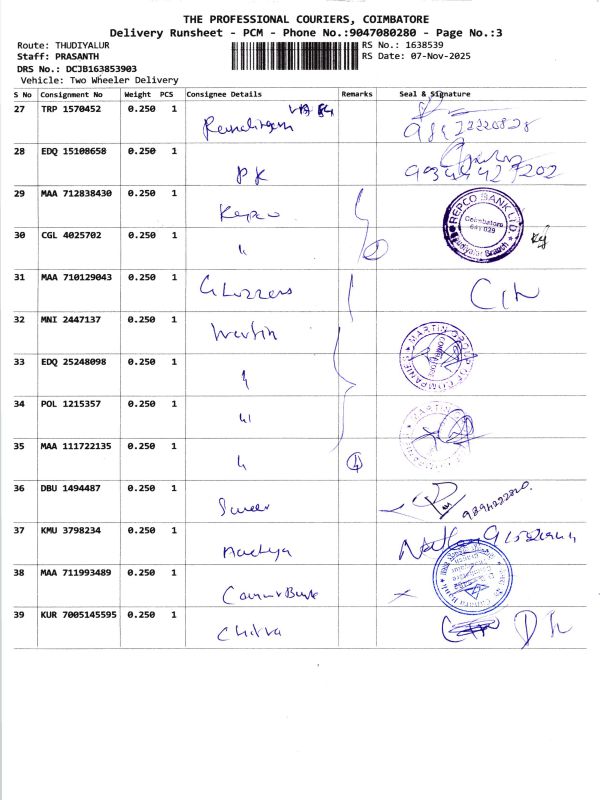 THE PROFESSIONAL COURIERS, COIMBATORE
Delivery Runsheet - PCM - Phone No.:9047080280 - Page No.:3
Route: THUDIYALUR RS No.: 1638539
Staff: PRASANTH RS Date: 07-Nov-2025
DRS No.: DCJB163853903
Vehicle: Two Wheeler Delivery
S No Consignment No Weight PCS Consignee Details Remarks Seal & Signature
27 TRP 1570452 0.250 1
28 EDQ 15108658 0.250 1 PK
29 MAA 712838430 0.250 1 Repco REPCO BANK LTD. Coimbatore 641 029 Thudiyalur Branch
30 CGL 4025702 0.250 1 " 2
31 MAA 710129043 0.250 1
32 MNI 2447137 0.250 1 Martin MARTIN GROUP OF COMPANIES COIMBATORE
33 EDQ 25248098 0.250 1 "
34 POL 1215357 0.250 1 "
35 MAA 111722135 0.250 1 " 4
36 DBU 1494487 0.250 1 9894222820.
37 KMU 3798234 0.250 1
38 MAA 711993489 0.250 1 Canara Bank
39 KUR 7005145595 0.250 1 Chitra